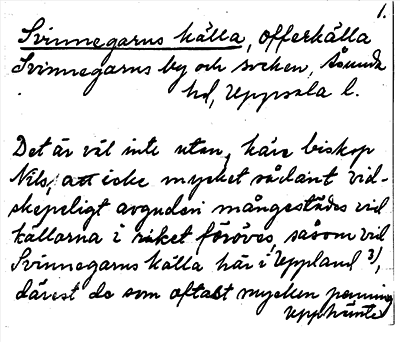 1.
Svinnegarns källa, offerkälla
Svinnegarns by och socken, Åsunda
hd, Uppsala l.
Det är väl inte utan, käre biskop
Nils, att icke mycket sådant vid-
skepeligt avguderi mångestädes vid
källorna i riket föröves, såsom vid
Svinnegarns källa här i Uppland 3),
därest de som oftast mycken penning
upphänta